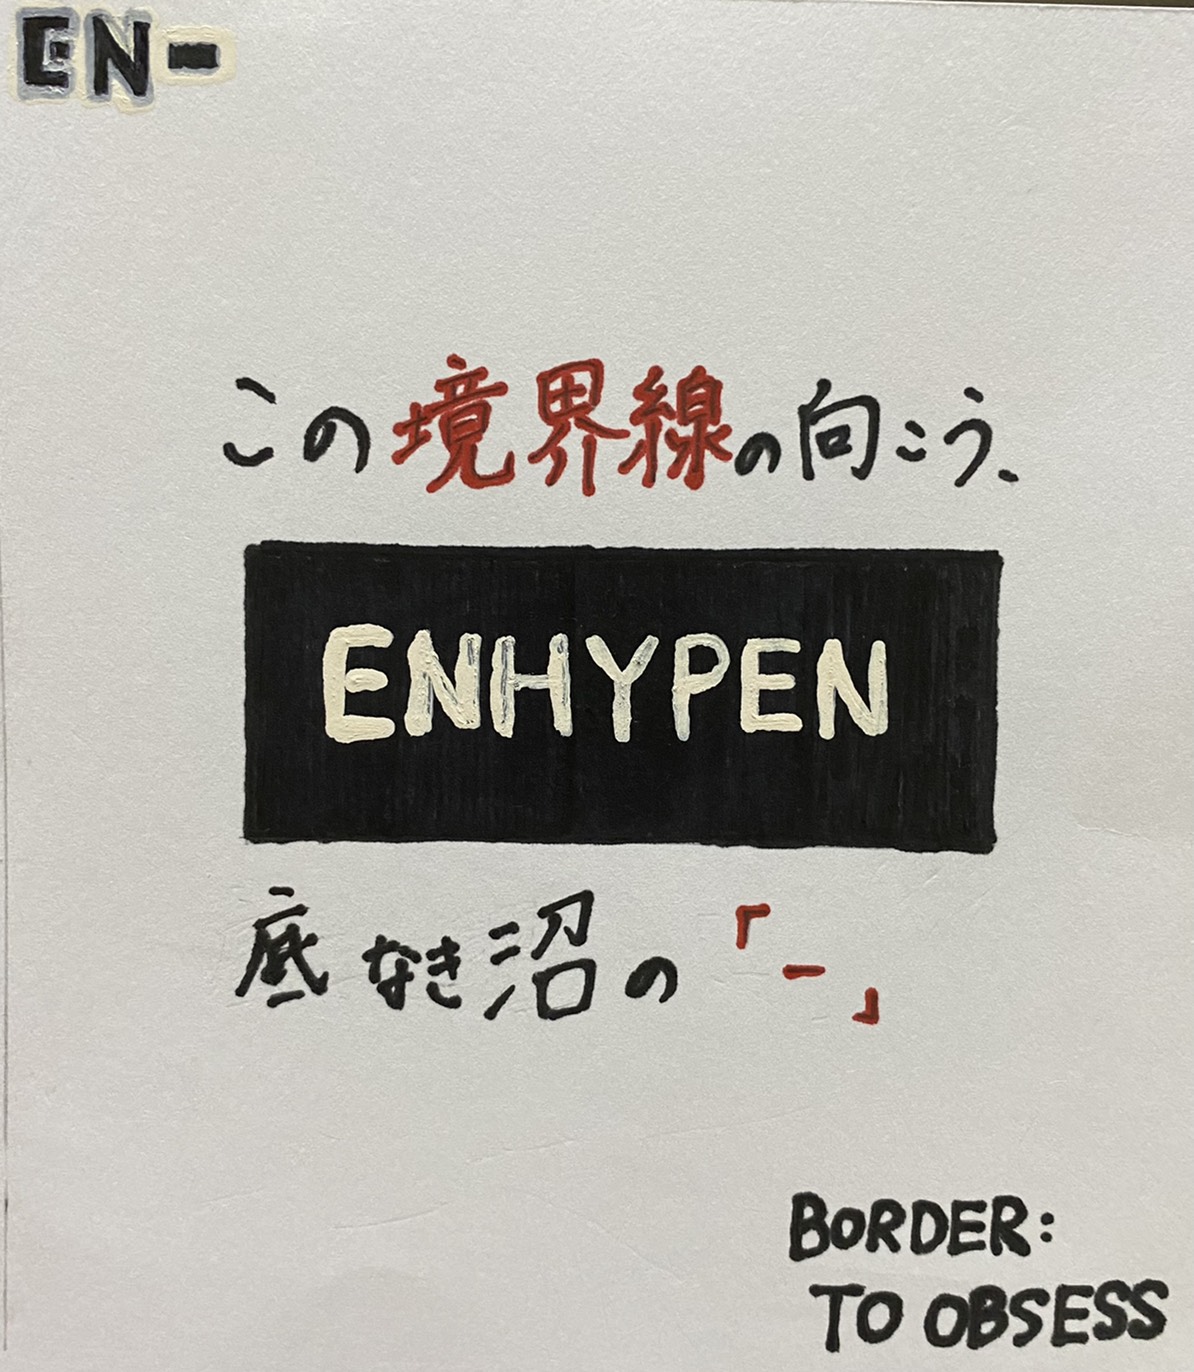 EN-
この境界線の向こう、
ENHYPEN
底なき沼の「-」
BORDER:
TO OBSESS